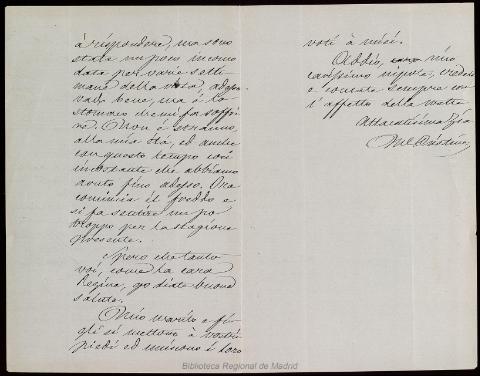 á rispondere, ma sono
stata un poco incomo
data per varie setti
mane della tosse, adesso
vado bene, ma è lo
stomaco che mi fa soffri
re. Non è estraneo,
alla mia età, ed anche
con questo tempo così
incostante che abbiamo
avuto fino adesso. Ora
comincia il freddo e
si fa sentire un po
troppo per la stagione
presente.
Spero che tanto
voi, come la cara
Regina, godiate buona
salute.
Mio marito e fi
gli si mettono à vostri
piedi ed uniscono i loro
voti à miei.
Addio, caro mio
carissimo nipote, credete
e contate sempre con
l'affetto della vostra
Affezionatissima Zia
M. Cristina
Biblioteca Regional de Madrid